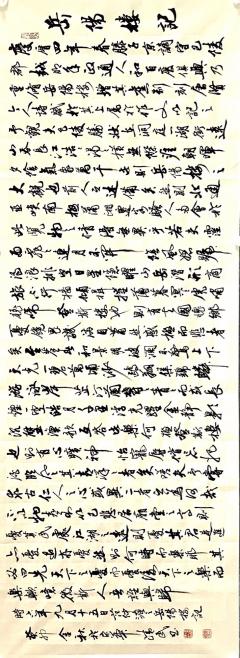 岳陽樓記
慶曆四年春滕子京謫守巴陵
郡越明年政通人和百廢俱興乃
重修岳陽樓增其舊制刻唐賢
今人詩賦於其上屬予作文以記之
予觀夫巴陵勝狀在洞庭一湖銜遠
山吞長江浩浩湯湯橫無際涯朝暉
夕陰氣象萬千此則岳陽樓之
大觀也前人之述備矣然則北通
巫峽南極瀟湘遷客騷人多會於
此覽物之情得無異乎若夫霪
雨霏霏連月不開陰風怒號
濁浪排空日星隱曜山岳潛形商
旅不行檣傾楫摧薄暮冥冥虎嘯
猿啼登斯樓也則有去國懷鄉
憂讒畏譏滿目蕭然感極而悲者
矣至若春和景明波瀾不驚上下
天光一碧萬頃沙鷗翔集錦鱗
游泳岸芷汀蘭郁郁青青而或長
煙一空皓月千里浮光躍金靜影
沉璧漁歌互答此樂何極登斯樓
也則有心曠神怡寵辱偕忘把
酒臨風其喜洋洋者矣嗟夫予嘗
求古仁人之心或異二者之為何哉
不以物喜不以己悲居廟堂之高則
憂其民處江湖之遠則憂其君是進
亦憂退亦憂然則何時而樂耶其
必曰先天下之憂而憂後天下之樂而
樂歟噫微斯人吾誰與歸
時六年九月十五日范仲淹之岳陽樓記
癸卯金秋